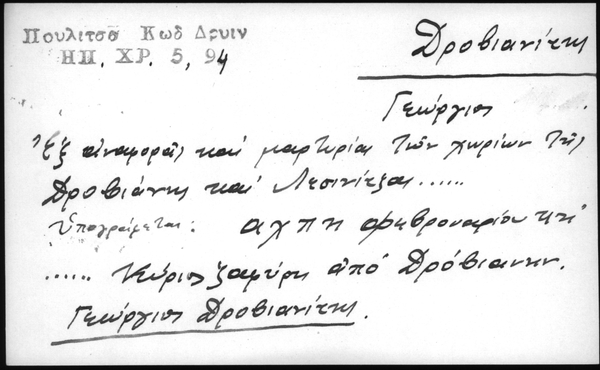 Πουλιτσα Κωδ Δρυιν
ΗΠ. ΧΡ. 5, 94
Δροβιανίτης
Γεώργιος
Ἐξ ἀναφορᾶς καί μαρτυρίας τῶν χωρίων τῆς
Δροβιάνης καί Λεσινίτζας......
Ὑπογράφεται: αχπη φεβρουαρίου κη
...... Κύριος ἀπό Δρόβιανην.
Γεώργιος Δροβιανίτης.